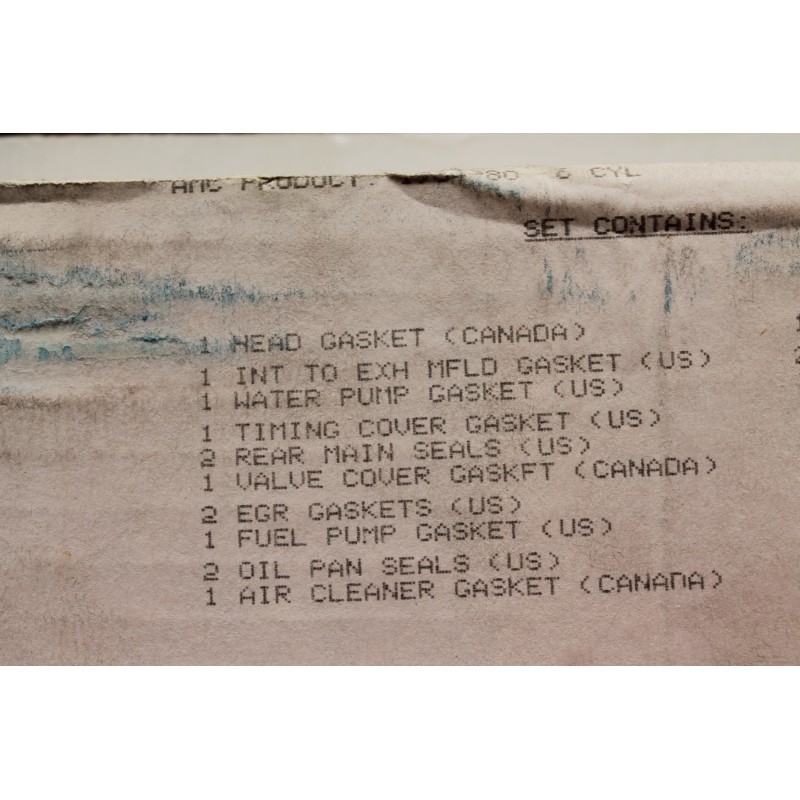 AMC PRODUCT: 6 CYL
SET CONTAINS:
1 HEAD GASKET (CANADA)
1 INT TO EXH MFLD GASKET (US)
1 WATER PUMP GASKET (US)
1 TIMING COVER GASKET (US)
2 REAR MAIN SEALS (US)
1 VALVE COVER GASKFT (CANADA)
2 EGR GASKETS (US)
1 FUEL PUMP GASKET (US)
2 OIL PAN SEALS (US)
1 AIR CLEANER GASKET (CANADA)